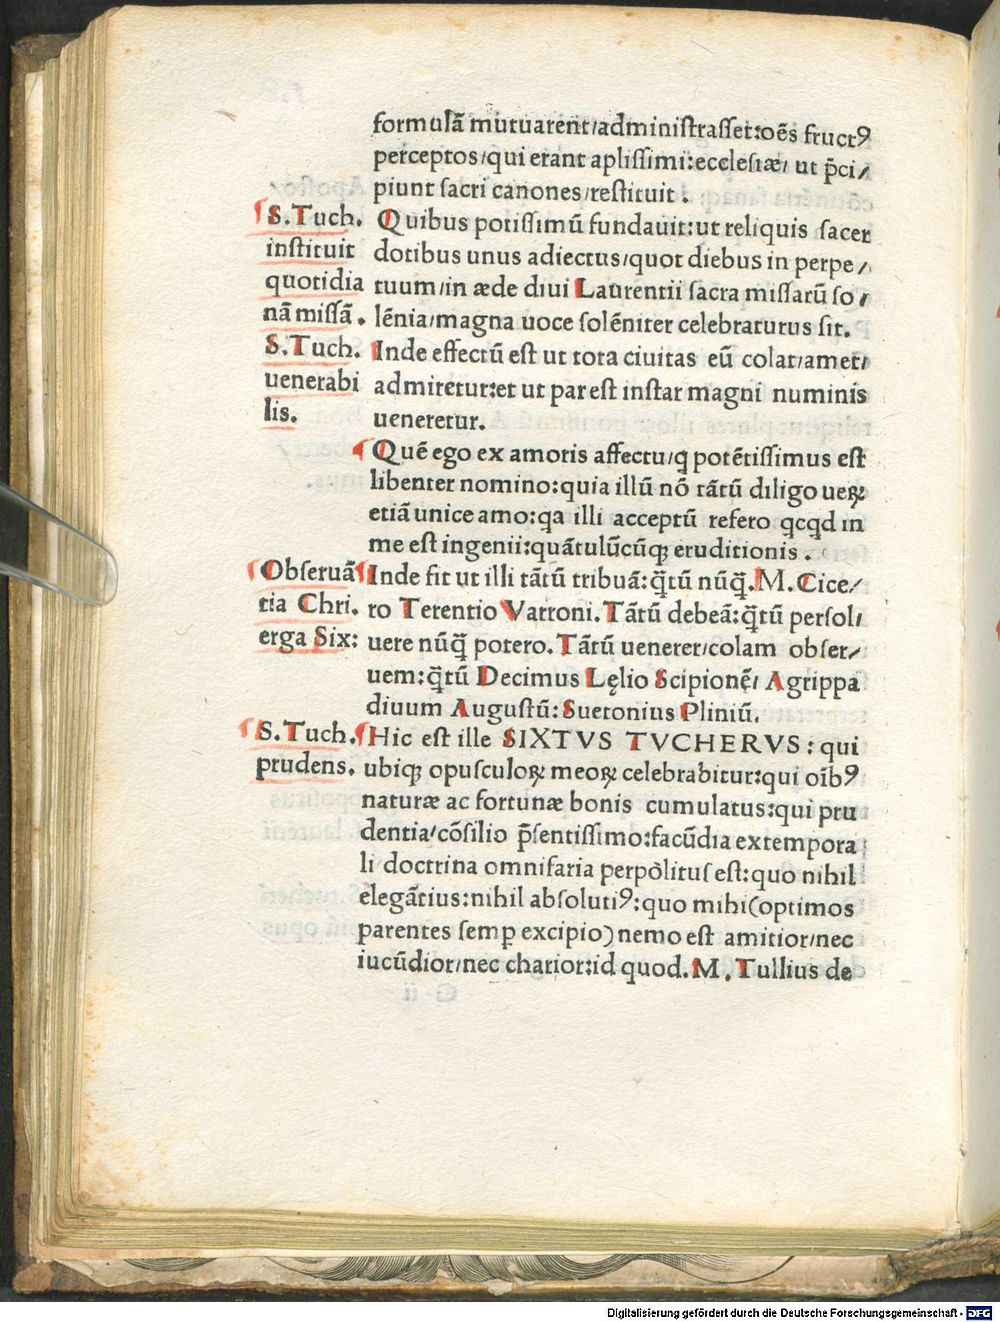 formulã mutuarent/administrasset:oẽs fruct9
perceptos/qui erant aplissimi:ecclesiæ/ ut p̃ci/
piunt sacri canones/restituit.
S. Tuch.
instituit
quotidia
nã missã.
Quibus potissimũ fundauit:ut reliquis sacer
dotibus unus adiectus/quot diebus in perpe/
tuum/in æde diui Laurentii sacra missarũ so/
lẽnia/magna uoce solẽniter celebraturus sit.
S. Tuch.
uenerabi
lis.
Inde effectũ est ut tota ciuitas eũ colat/amet/
admiretur:et ut par est instar magni numinis
ueneretur.
Quẽ ego ex amoris affectu/q potẽtissimus est
libenter nomino:quia illũ nõ tãtũ diligo ueꝝ
etiã unice amo:qa illi acceptũ refero qcqd in
me est ingenii:quãtulũcũqꝫ eruditionis.
Obseruã
tia Chri.
erga Six:
Inde fit ut illi tãtũ tribuã:q̃tũ nũq̃. M. Cice/
ro Terentio Varroni. Tãtũ debeã:q̃tũ persol/
uere nũq̃ potero. Tãtũ uenerer/colam obser/
uem:q̃tũ Decimus Lęlio Scipionẽ/ Agrippa
diuum Augustũ: Suetonius Pliniũ.
S. Tuch.
prudens.
Hic est ille SIXTVS TVCHERVS: qui
ubiqꝫ opusculoꝝ meoꝝ celebrabitur:qui oĩb9
naturæ ac fortunæ bonis cumulatus:qui pru
dentia/cõsilio p̃sentissimo:facũdia extempora
li doctrina omnifaria perpolitus est:quo nihil
elegãtius:nihil absoluti9:quo mihi(optimos
parentes semꝑ excipio)nemo est amitior/nec
iucũdior/nec charior:id quod. M. Tullius de
Digitalisierung gefördert durch die Deutsche Forschungsgemeinschaft - DFG